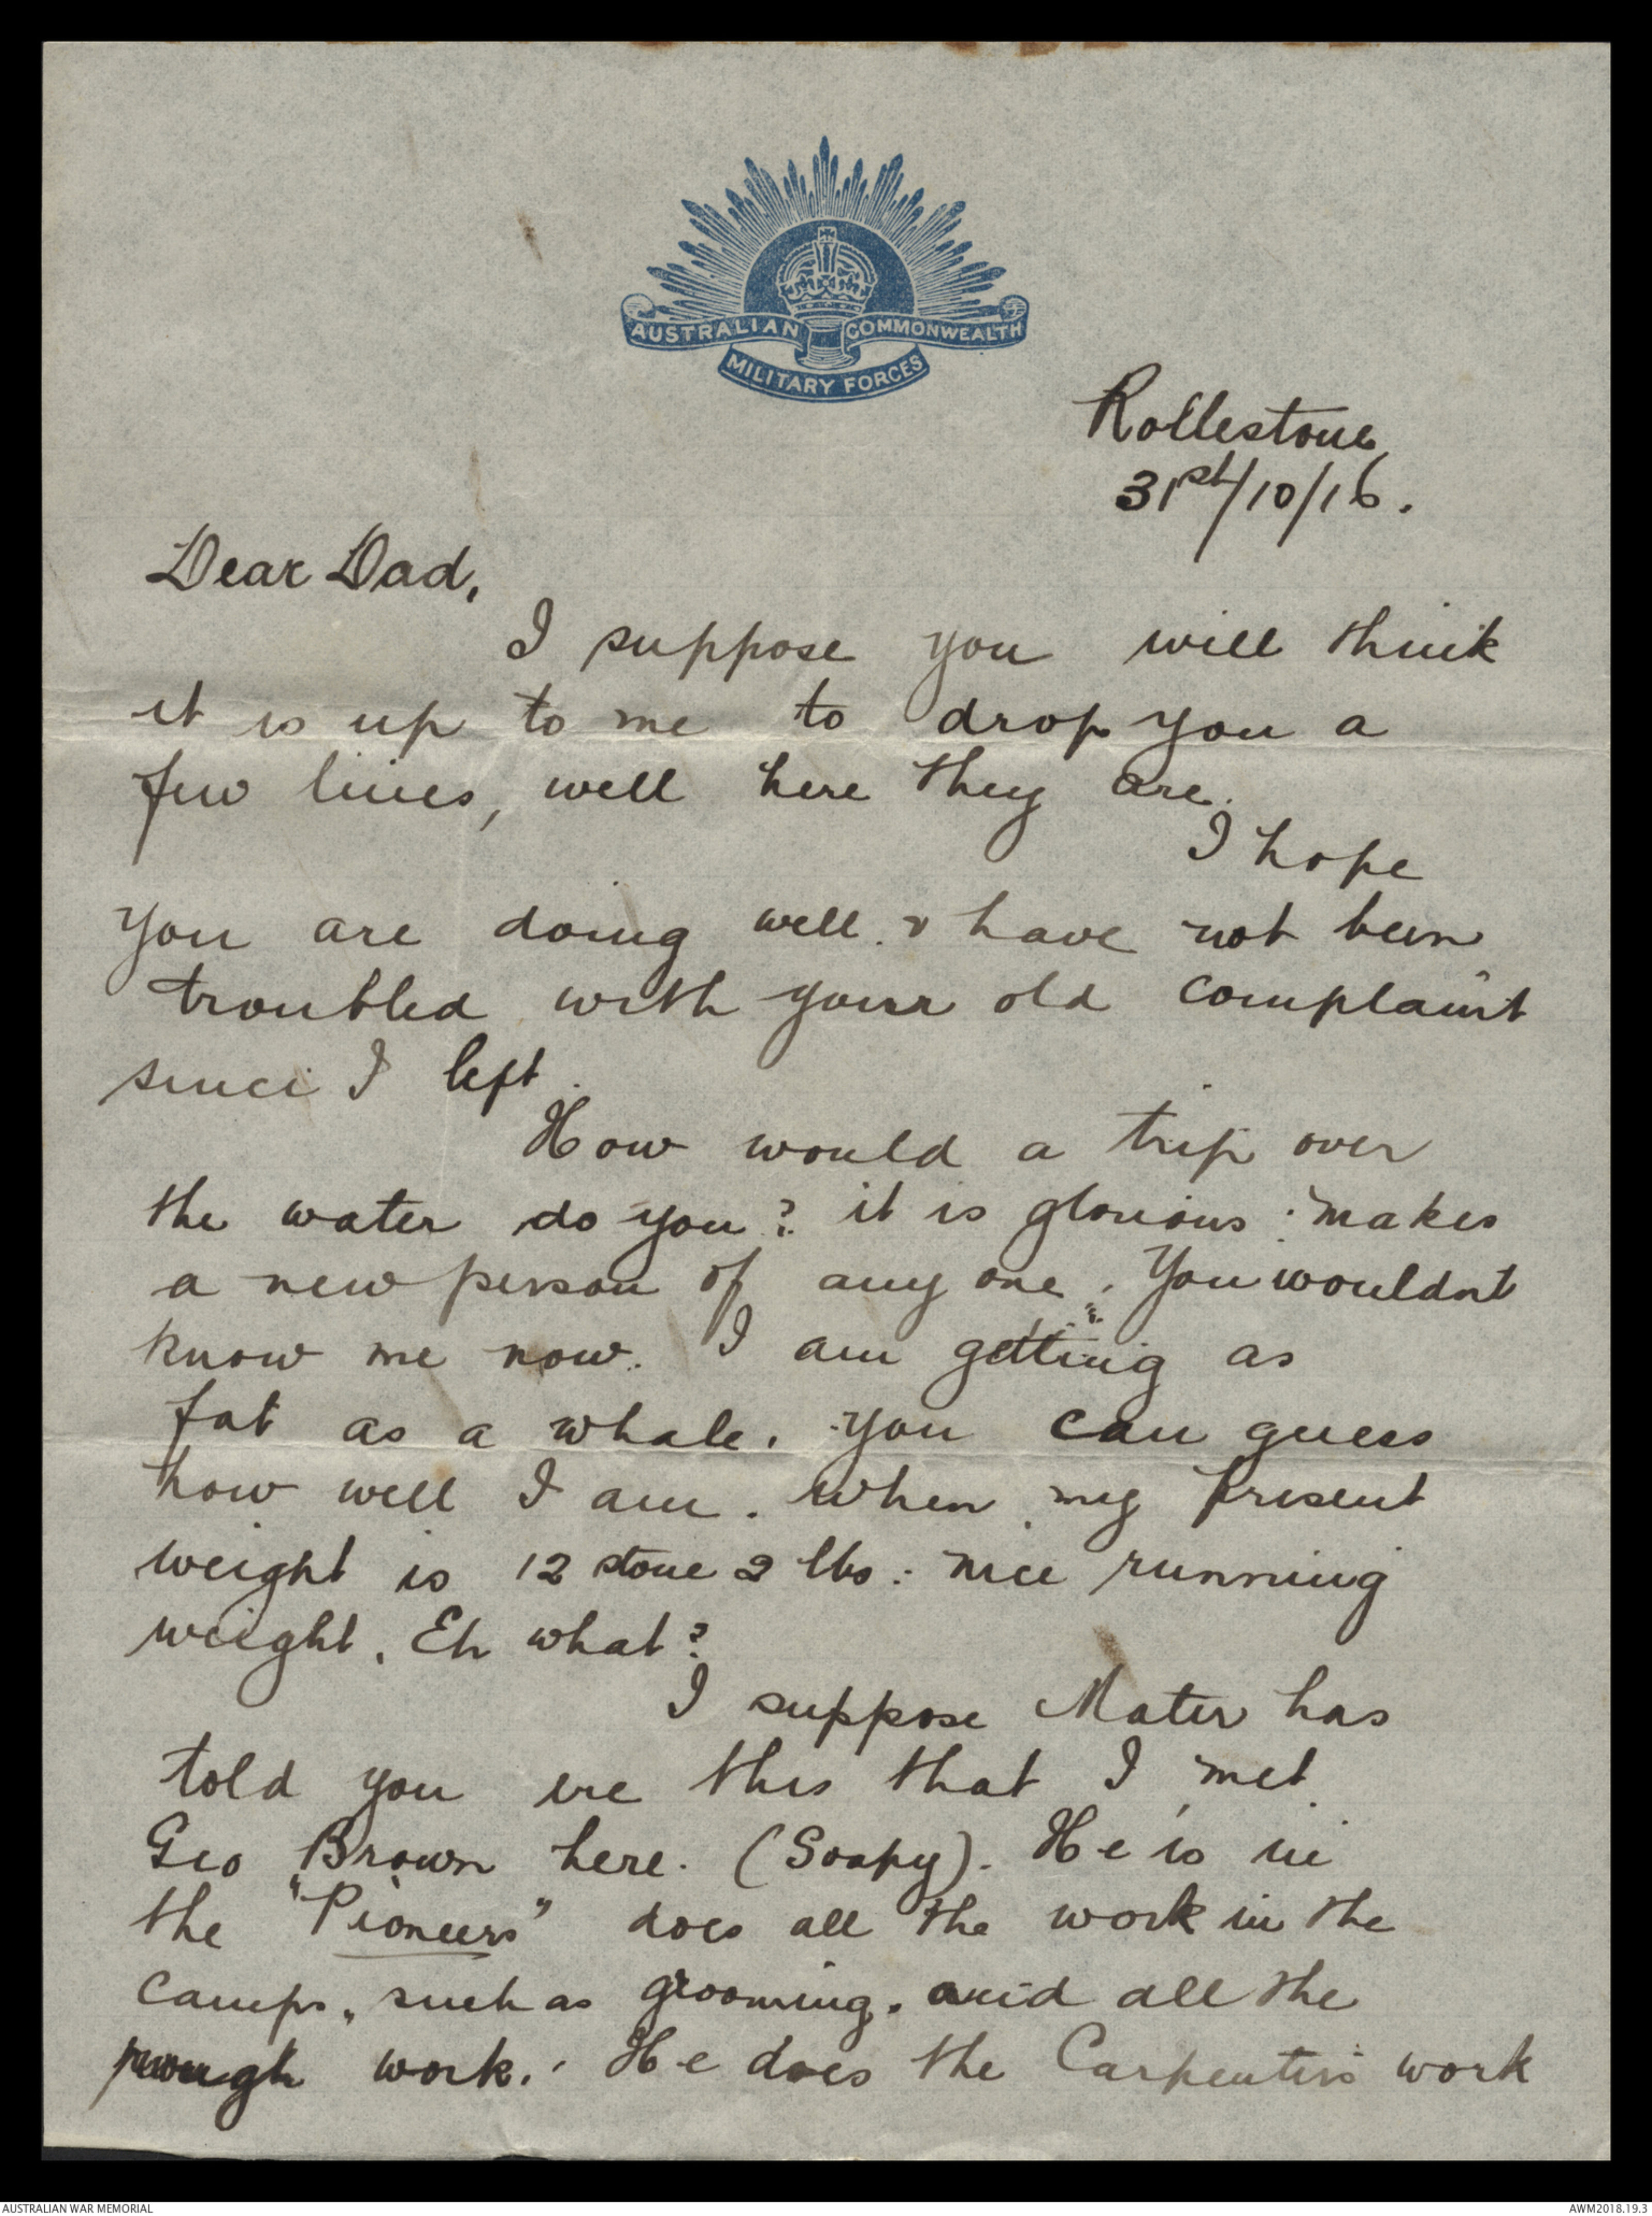 AUSTRALIAN COMMONWEALTH
MILITARY FORCES
Rollestone
31st/10/16.
Dear Dad,
I suppose you will think
it is up to me to drop you a
few lines, well here they are.
I hope
you are doing well. & have not been
troubled with your old complaint
since I left.
How would a trip over
the water do you? it is glorious: makes
a new person of any one. You wouldnt
know me now. I am getting as
fat as a whale. you can guess
how well I am. when my present
weight is 12 stone 2 lbs: nice running
weight. Eh what?
I suppose Mater has
told you ere this that I met
Geo Brown here. (Soapy). He is in
the "Pioneers" does all the work in the
camps, such as grooming. and all the
rough work. He does the Carpenters work
AUSTRALIAN WAR MEMORIAL
AWM2018.19.3